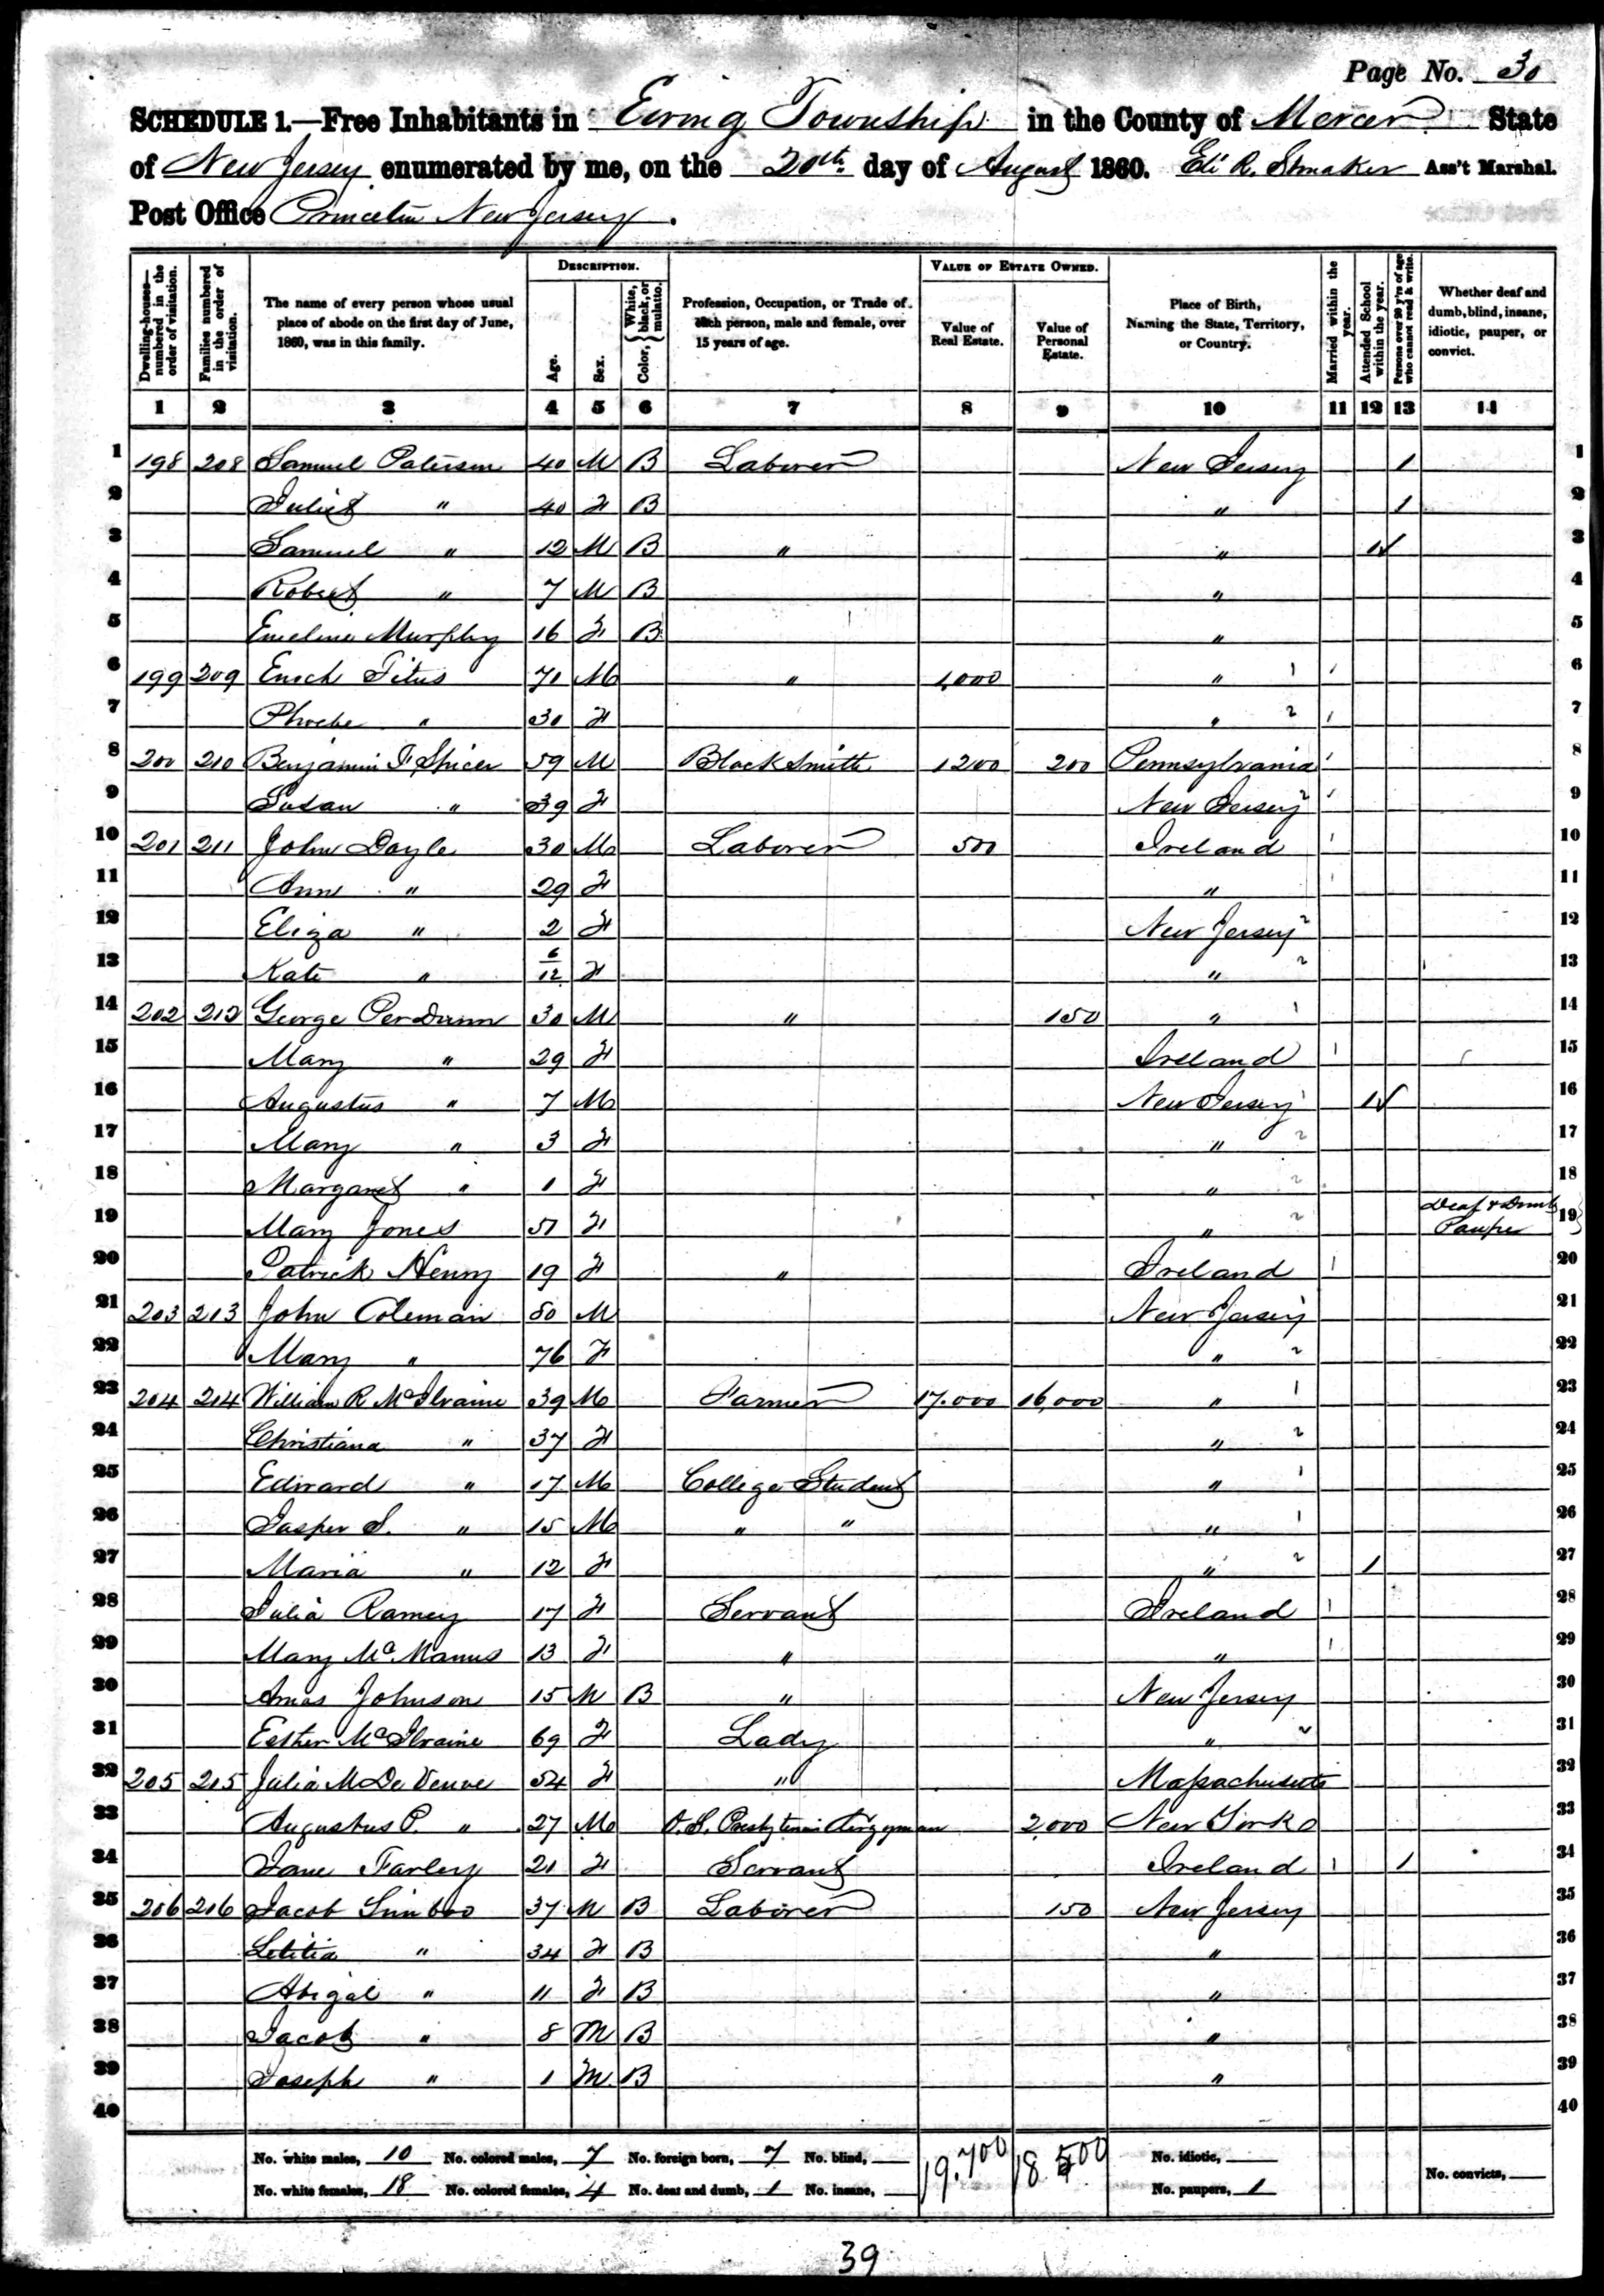 Page No. 30
SCHEDULE 1.—Free Inhabitants in Ewing Township in the County of Mercer State
of New Jersey enumerated by me, on the 20th day of August 1860. Eli R. Stonaker Ass't Marshal.
Post Office Princeton New Jersey.
Dwelling-houses—numbered in the order of visitation.
Families numbered in the order of visitation.
The name of every person whose usual place of abode on the first day of June, 1860, was in this family.
DESCRIPTION.
Age.
Sex.
Color, { White, black, or mulatto.
Profession, Occupation, or Trade of each person, male and female, over 15 years of age.
VALUE OF ESTATE OWNED.
Value of Real Estate.
Value of Personal Estate.
Place of Birth, Naming the State, Territory, or Country.
Married within the year.
Attended School within the year.
Persons over 20 y'rs of age who cannot read & write.
Whether deaf and dumb, blind, insane, idiotic, pauper, or convict.
1 2 3 4 5 6 7 8 9 10 11 12 13 14
1 198 208 Samuel Paterson 40 M B Laborer New Jersey 1 1
2 Juliet " 40 F B " 1 2
3 Samuel " 12 M B " " 1 3
4 Robert " 7 M B " 4
5 Emeline Murphy 16 F B " 5
6 199 209 Enoch Titus 71 M " 1,000 " 1 1 6
7 Phoebe " 30 F " 2 1 7
8 200 210 Benjamin F Spicer 59 M BlackSmith 1200 200 Pennsylvania 1 8
9 Susan " 39 F New Jersey 2 1 9
10 201 211 John Doyle 30 M Laborer 500 Ireland 1 10
11 Ann " 29 F " 1 11
12 Eliza " 2 F New Jersey 2 12
13 Kate " 6/12 F " 2 13
14 202 212 George PerDunn 30 M " 150 " 1 14
15 Mary " 29 F Ireland 1 15
16 Augustus " 7 M New Jersey 1 1 16
17 Mary " 3 F " 2 17
18 Margaret " 1 F " 2 18
19 Mary Jones 51 F " 2 Deaf & Dumb Pauper 19
20 Patrick Henry 19 F " Ireland 1 20
21 203 213 John Coleman 80 M New Jersey 21
22 Mary " 76 F " 2 22
23 204 214 William R McIlvaine 39 M Farmer 17.000 16,000 " 1 23
24 Christiana " 37 F " 2 24
25 Edward " 17 M College Student " 1 25
26 Jasper S. " 15 M " " " 1 26
27 Maria " 12 F " 2 1 27
28 Julia Ramey 17 F Servant Ireland 1 28
29 Mary McManus 13 F " " 1 29
30 Amos Johnson 15 M B " New Jersey 30
31 Esther McIlvaine 69 F Lady " 2 31
32 205 215 Julia M De Veuve 54 F " Massachusetts 32
33 Augustus P. " 27 M O.S. Presbyterian Clergyman 2,000 New York 33
34 Jane Farley 21 F Servant Ireland 1 1 34
35 206 216 Jacob 37 M B Laborer 150 New Jersey 35
36 Letitia " 34 F B " 36
37 Abigal " 11 F B " 37
38 Jacob " 8 M B " 38
39 Joseph " 1 M B " 39
40 40
No. white males, 10 No. colored males, 7 No. foreign born, 7 No. blind, 19.700 18.500 No. idiotic,
No. white females, 18 No. colored females, 4 No. deaf and dumb, 1 No. insane, No. paupers, 1 No. convicts,
39